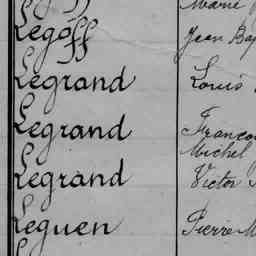 Marie
Legoff Jean Bap
Legrand Louis
Legrand Francoi
Michel
Legrand Victor
Leguen Pierre M